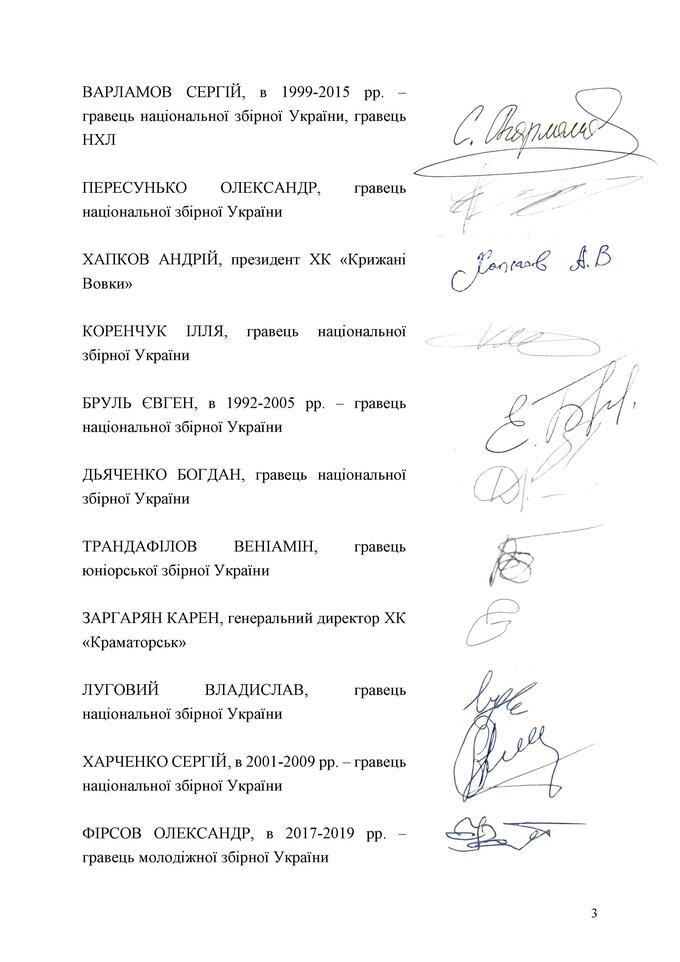 ВАРЛАМОВ СЕРГІЙ, в 1999-2015 рр. –
гравець національної збірної України, гравець
НХЛ
ПЕРЕСУНЬКО ОЛЕКСАНДР, гравець
національної збірної України
ХАПКОВ АНДРІЙ, президент ХК «Крижані
Вовки»
А.В
КОРЕНЧУК ІЛЛЯ, гравець національної
збірної України
БРУЛЬ ЄВГЕН, в 1992-2005 рр. – гравець
національної збірної України
ДЬЯЧЕНКО БОГДАН, гравець національної
збірної України
ТРАНДАФІЛОВ ВЕНІАМІН, гравець
юніорської збірної України
ЗАРГАРЯН КАРЕН, генеральний директор ХК
«Краматорськ»
ЛУГОВИЙ ВЛАДИСЛАВ, гравець
національної збірної України
ХАРЧЕНКО СЕРГІЙ, в 2001-2009 рр. – гравець
національної збірної України
ФІРСОВ ОЛЕКСАНДР, в 2017-2019 рр. –
гравець молодіжної збірної України
3